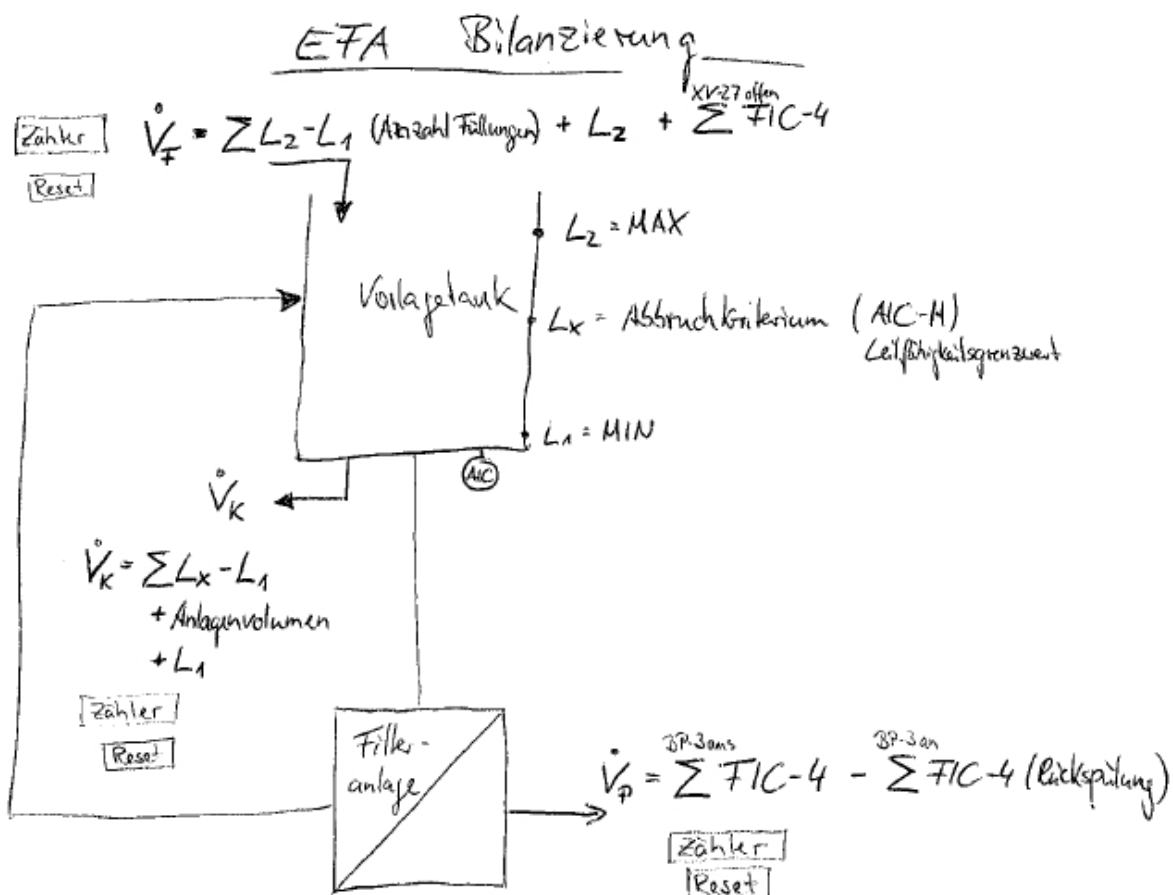 EFA Bilanzierung
XV-27 offen
Zähler V̇F = ∑ L2 - L1 (Anzahl Füllungen) + L2 + ∑ FIC-4
Reset
L2 = MAX
Vorlagetank
Lx = Abbruchkriterium (AIC-H)
Leitfähigkeitsgrenzwert
L1 = MIN
AIC
V̇K
V̇K = ∑ Lx - L1
+ Anlagenvolumen
+ L1
Zähler
Reset
Filter-
anlage
BP-3 aus BP-3 an
V̇P = ∑ FIC-4 - ∑ FIC-4 (Rückspülung)
Zähler
Reset